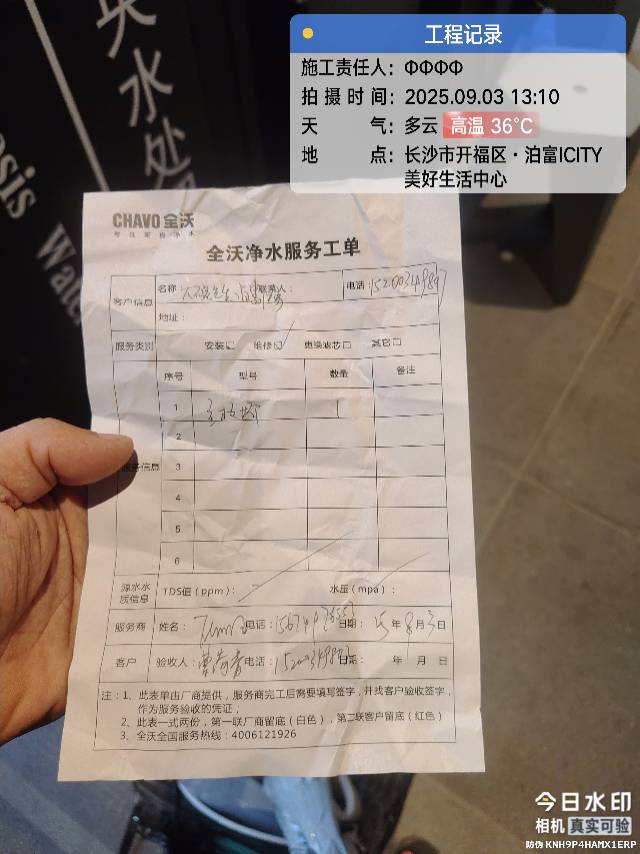 工程记录
施工责任人：ФФФФ
拍摄时间：2025.09.03 13:10
天气：多云 高温 36°C
地点：长沙市开福区·泊富ICITY
美好生活中心
央水处
osis Wate
CHAVO 全沃
全沃净水服务工单
客户信息 名称： 联系人： 电话：
地址：
服务类别 安装□ 维修☑ 更换滤芯□ 其它□
序号 型号 数量 备注
1 1
2
服务信息 3
4
5
6
源水水质信息 TDS值（ppm）： 水压（mpa）：
服务商 姓名： 电话： 日期： 年 月 日
客户 验收人： 电话： 日期： 年 月 日
注：1、此表单由厂商提供，服务商完工后需要填写签字，并找客户验收签字，
作为服务验收的凭证；
2、此表一式两份，第一联厂商留底（白色），第二联客户留底（红色）
3、全沃全国服务热线：4006121926
今日水印
相机 真实可验
防伪 KNH9P4HAMX1ERP